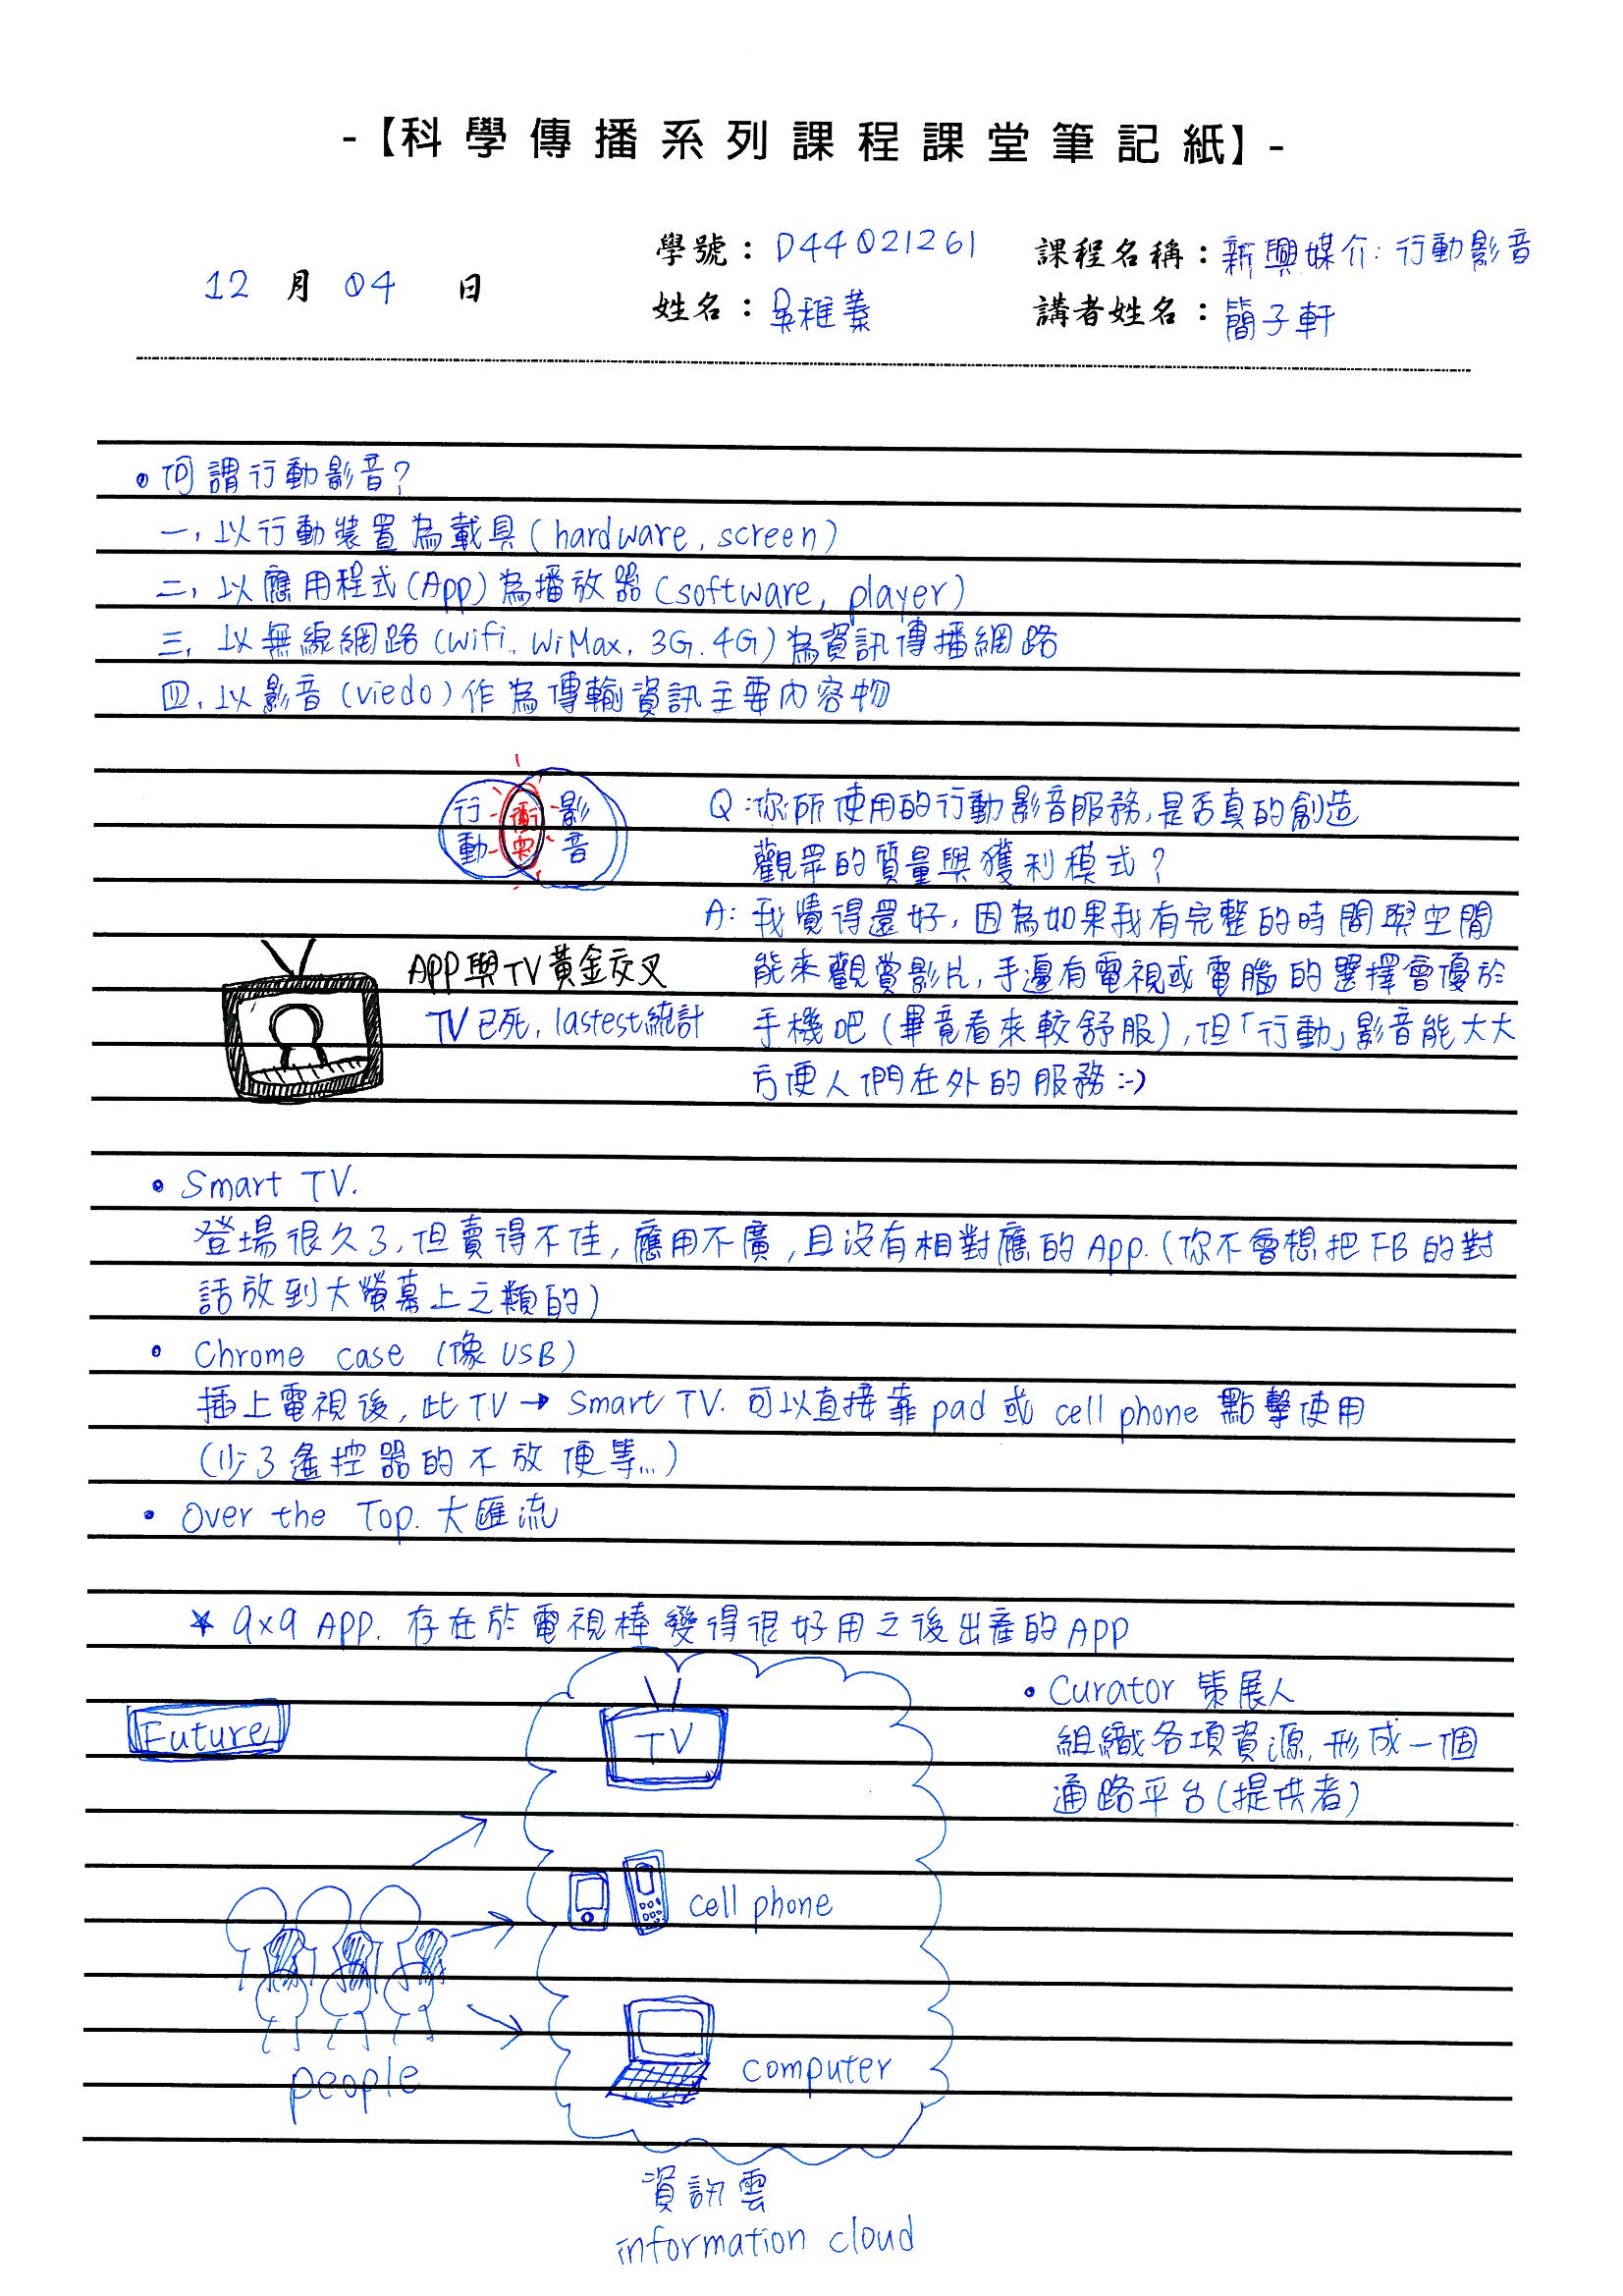 -【科學傳播系列課程課堂筆記紙】-
12 月 04 日
學號：D44021261
課程名稱：新興媒介：行動影音
姓名：吳稚蓁
講者姓名：簡子軒
• 何謂行動影音？
一, 以行動裝置為載具(hardware, screen)
二, 以應用程式(App)為播放器(software, player)
三, 以無線網路(wifi, WiMax, 3G.4G)為資訊傳播網路
四, 以影音(viedo)作為傳輸資訊主要內容物
行動
衝突
影音
Q：你所使用的行動影音服務,是否真的創造
觀眾的質量與獲利模式？
A：我覺得還好，因為如果我有完整的時間與空間
能來觀賞影片，手邊有電視或電腦的選擇會優於
手機吧(畢竟看來較舒服)，但「行動」影音能大大
方便人們在外的服務:-)
APP與TV黃金交叉
TV已死, lastest統計
• Smart TV.
登場很久了，但賣得不佳，應用不廣，且沒有相對應的App.(你不會想把FB的對
話放到大螢幕上之類的)
• Chrome case (像USB)
插上電視後，此TV → Smart TV. 可以直接靠pad或cell phone點擊使用
(少了遙控器的不放便等...)
• Over the Top. 大匯流
★ 9x9 APP. 存在於電視棒變得很好用之後出產的APP
Future
TV
cell phone
computer
people
資訊雲
information cloud
• Curator 策展人
組織各項資源，形成一個
通路平台(提供者)